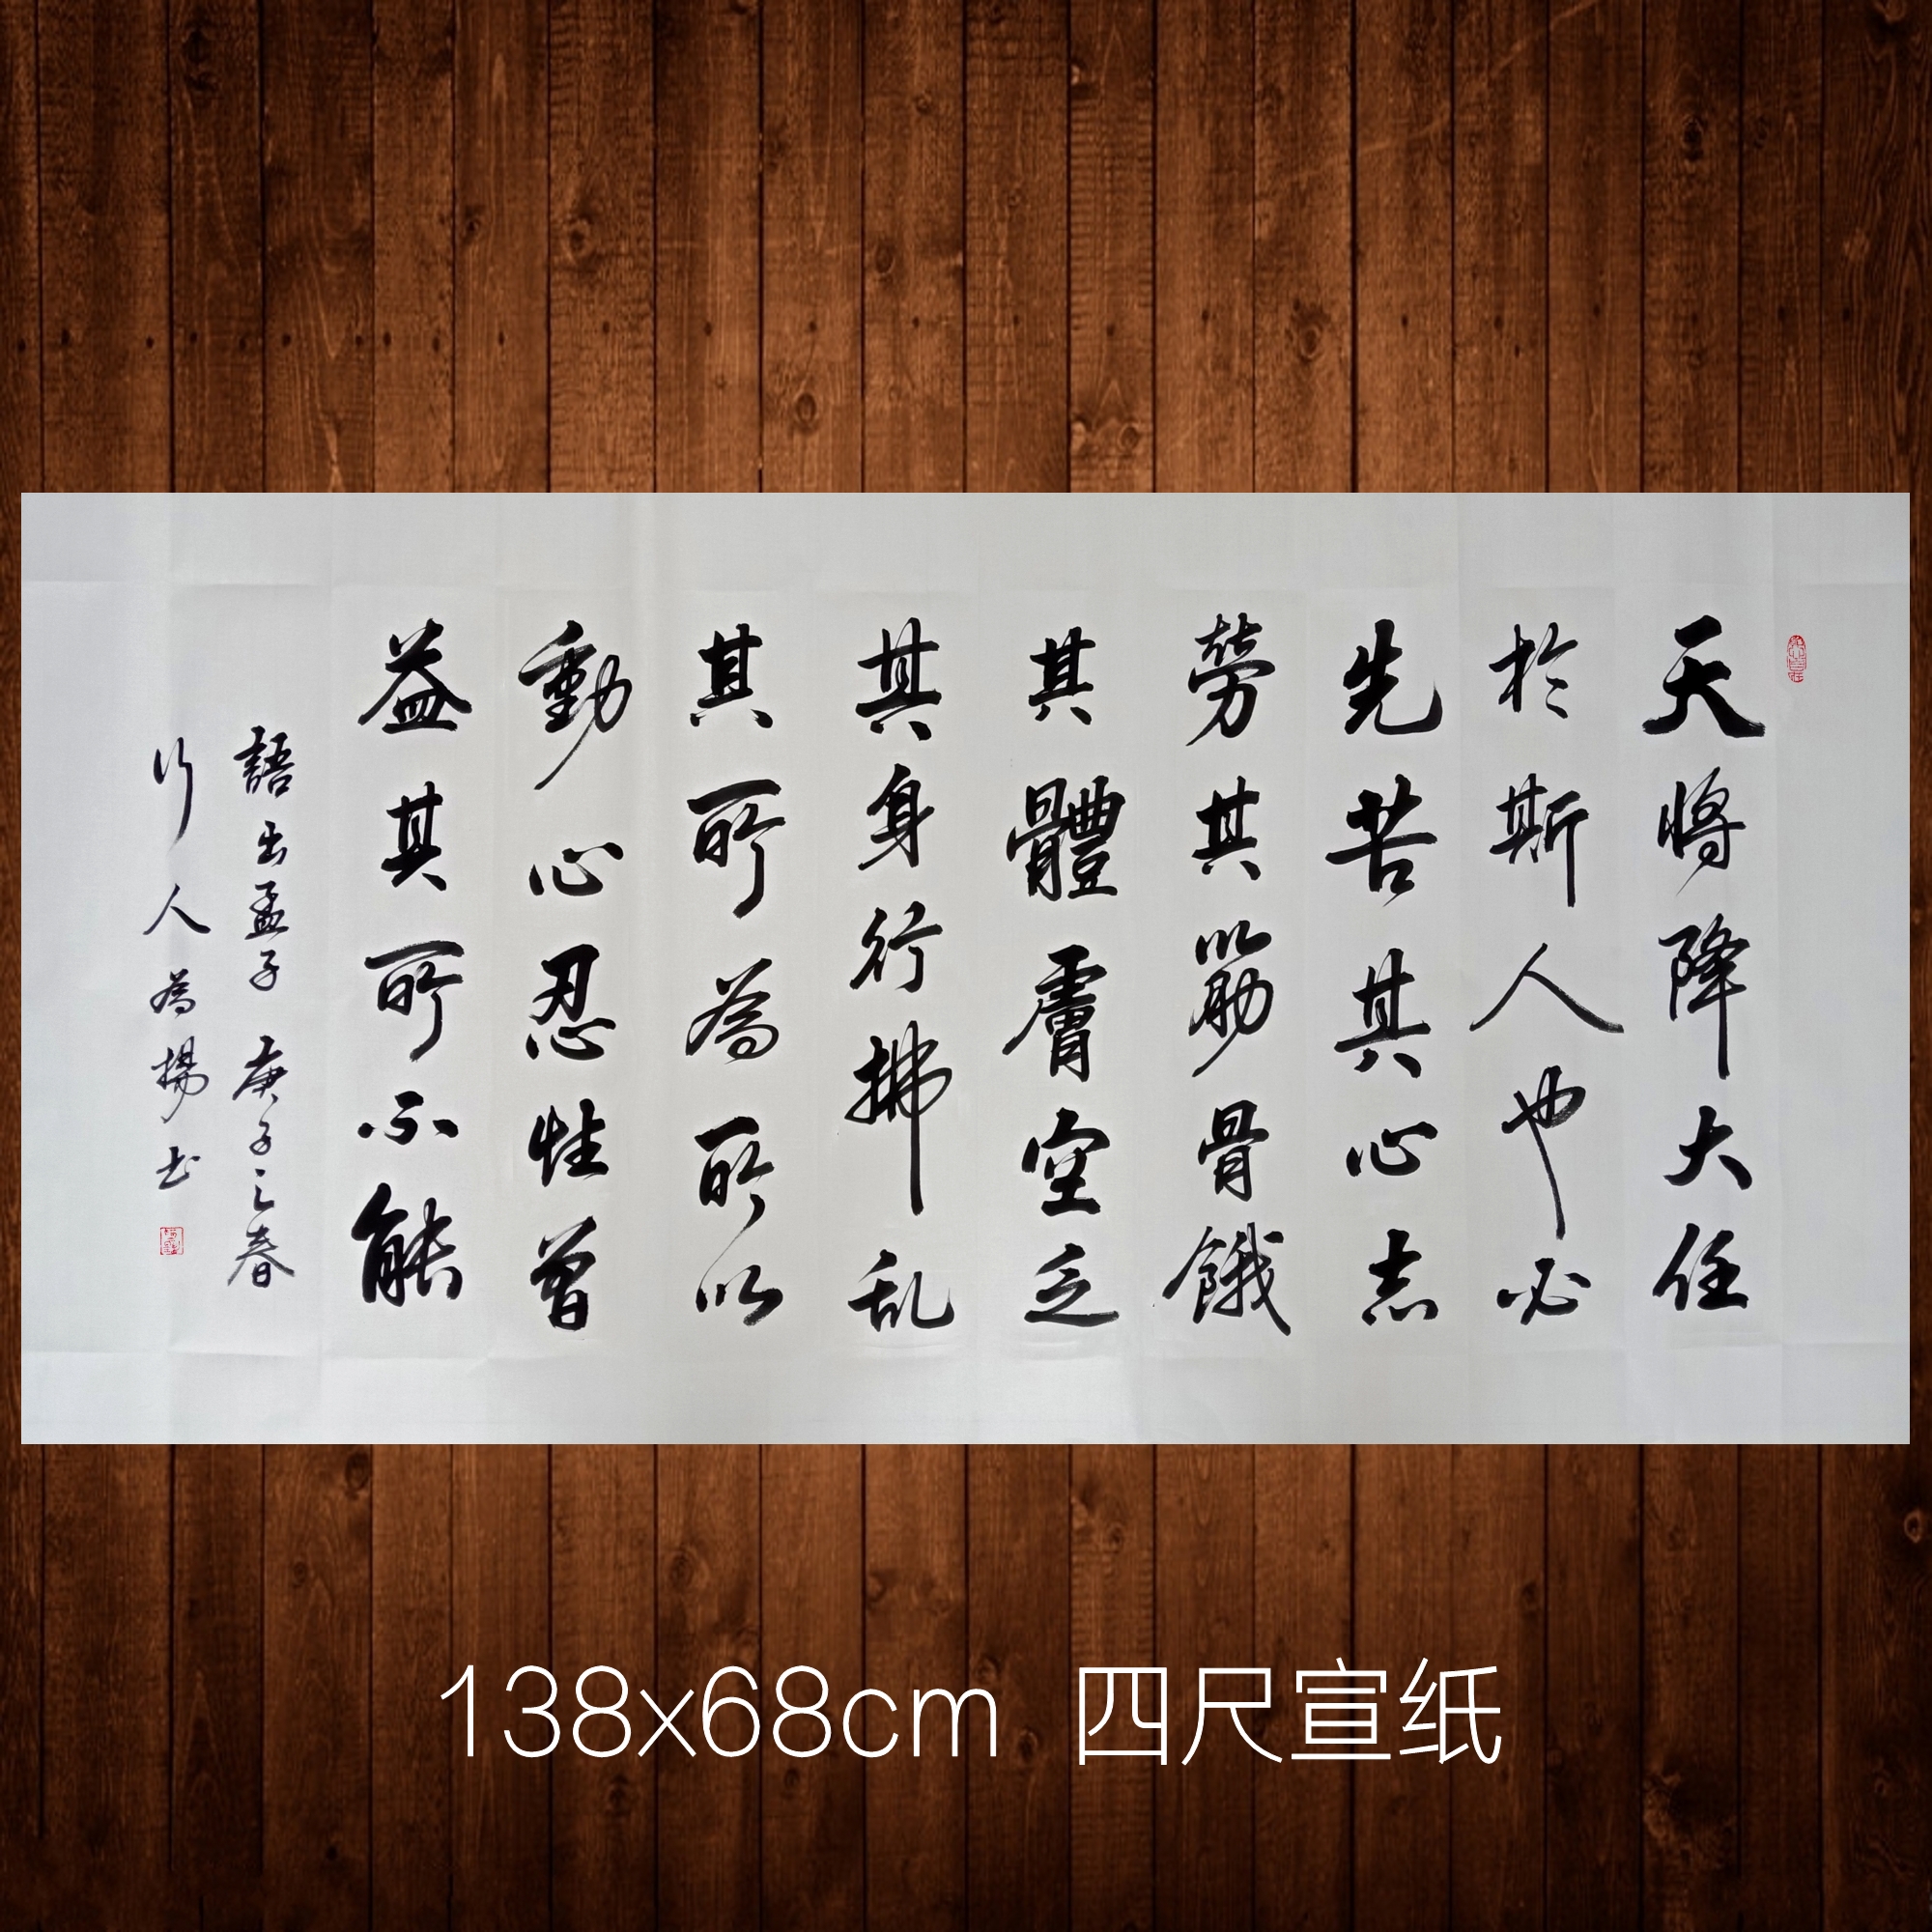 天將降大任
於斯人也必
先苦其心志
勞其筋骨餓
其體膚空乏
其身行拂乱
其所為所以
動心忍性曾
益其所不能
語出孟子 庚子之春
行人為揚書
138x68cm 四尺宣纸